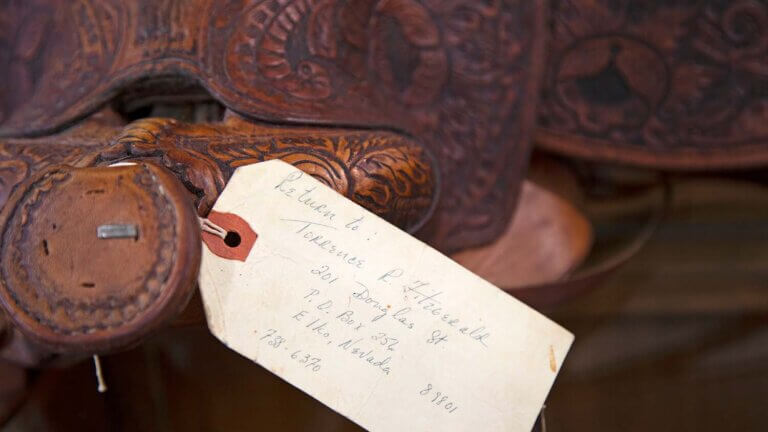 Return to:
Torrence R. Fitzgerald
201 Douglas St
P.O. Box 256
Elko, Nevada
89801
738-6370